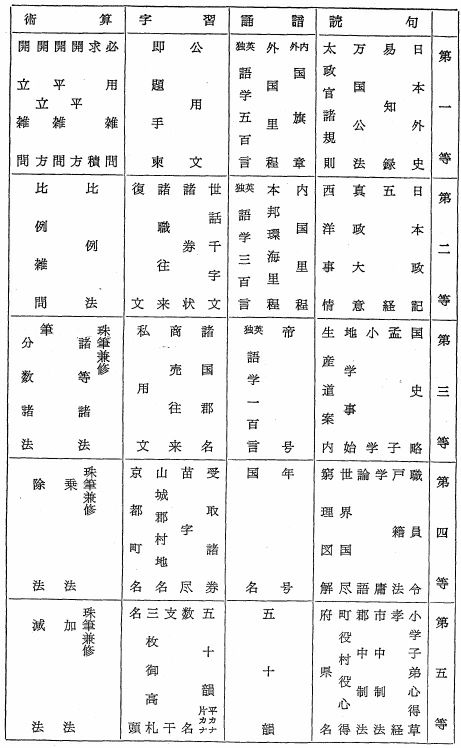 句読
諳誦
習字
算術
第一等
日本外史
易知録
万国公法
太政官諸規則
内外国旗章
外国里程
英独語学五百言
公用文
即題手柬
必用雑問
求積
開平方
開平雑問
開立方
開立雑問
第二等
日本政記
五経
真政大意
西洋事情
内国里程
本邦環海里程
英独語学三百言
世話千字文
諸券状
諸職往来
復文
比例法
比例雑問
第三等
国史略
孟子
小学
地学事始
生産道案内
帝号
英独語学一百言
諸国郡名
商売往来
私用文
珠筆兼修
諸等諸法
筆
分数諸法
第四等
職員令
戸籍法
学庸
論語
世界国尽
窮理図解
年号
国名
受取諸券
苗字尽
山城郡村地名
京都町名
珠筆兼修
乗法
除法
第五等
小学子弟心得草
孝経
市中制法
郡中制法
町役村役心得
府県名
五十韻
五十韻 平カナ片カナ
数名
支干
三枚御高札
名頭
珠筆兼修
加法
減法